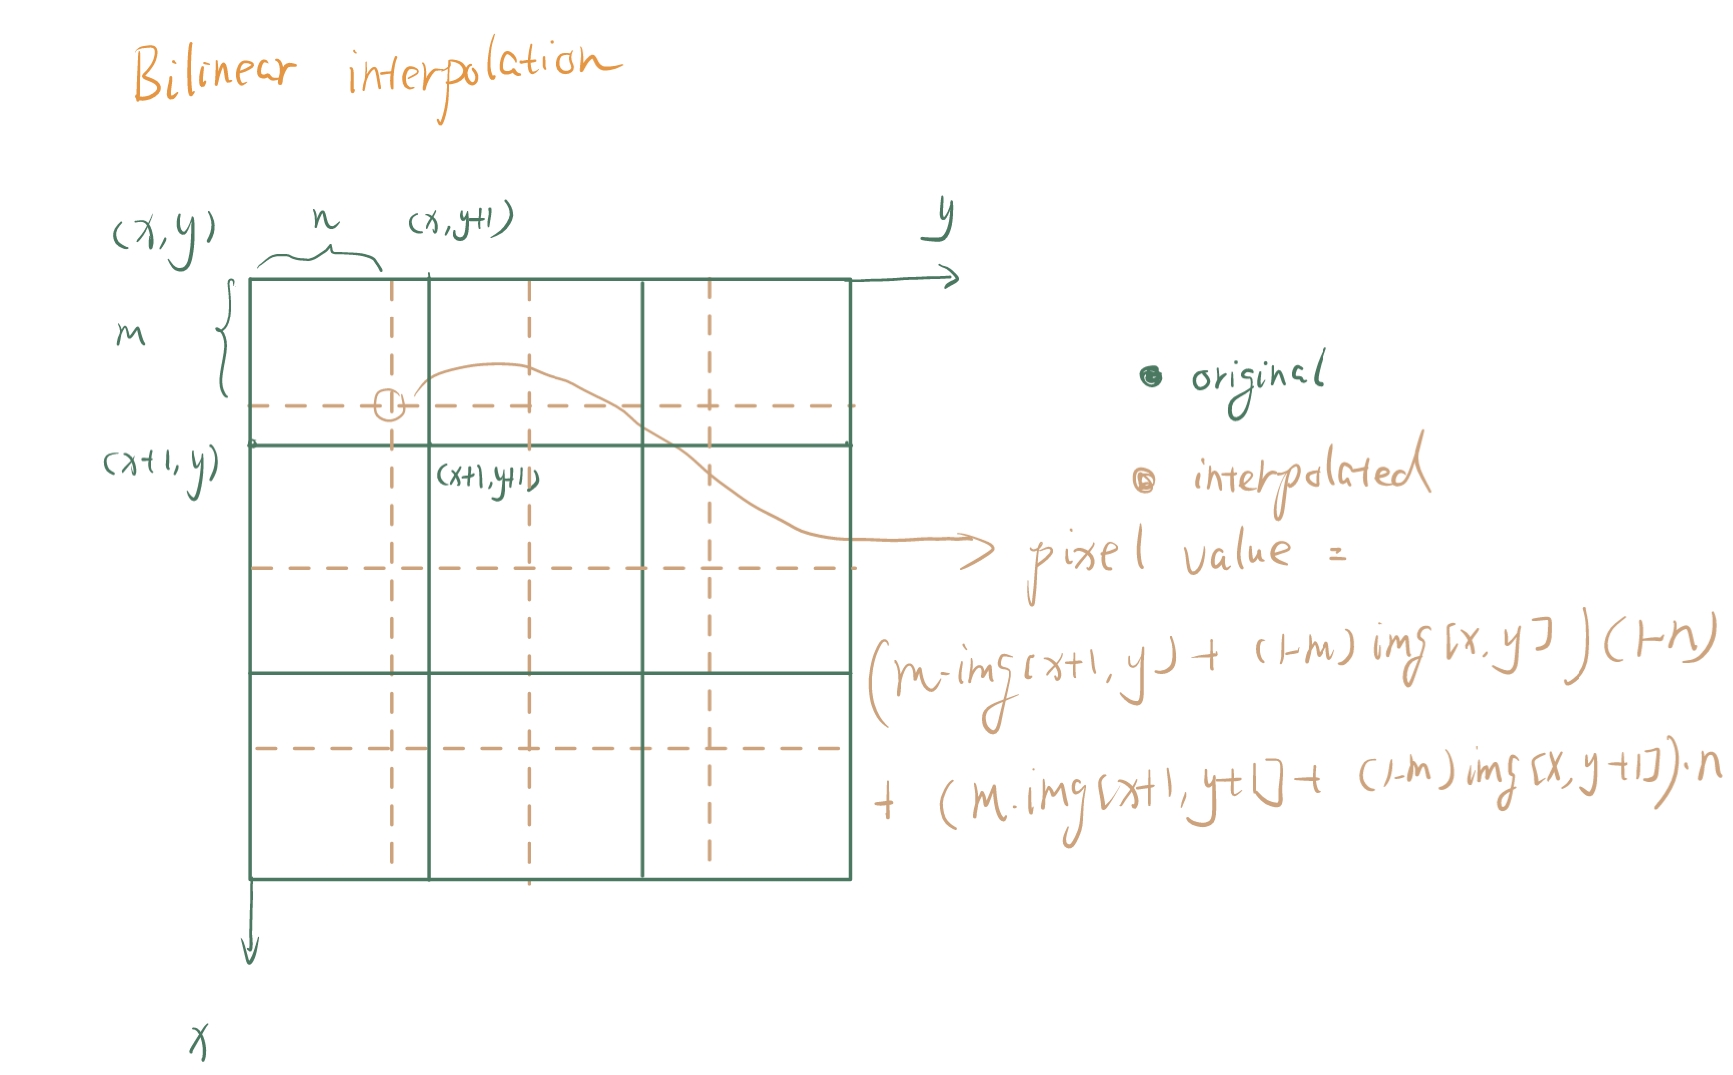 Bilinear interpolation
(x,y) n (x,y+1) y
m
original
(x+1,y) (x+1,y+1) interpolated
pixel value =
(m·img[x+1,y] + (1-m) img[x,y])(1-n)
+ (m·img[x+1,y+1] + (1-m) img[x,y+1])·n
x